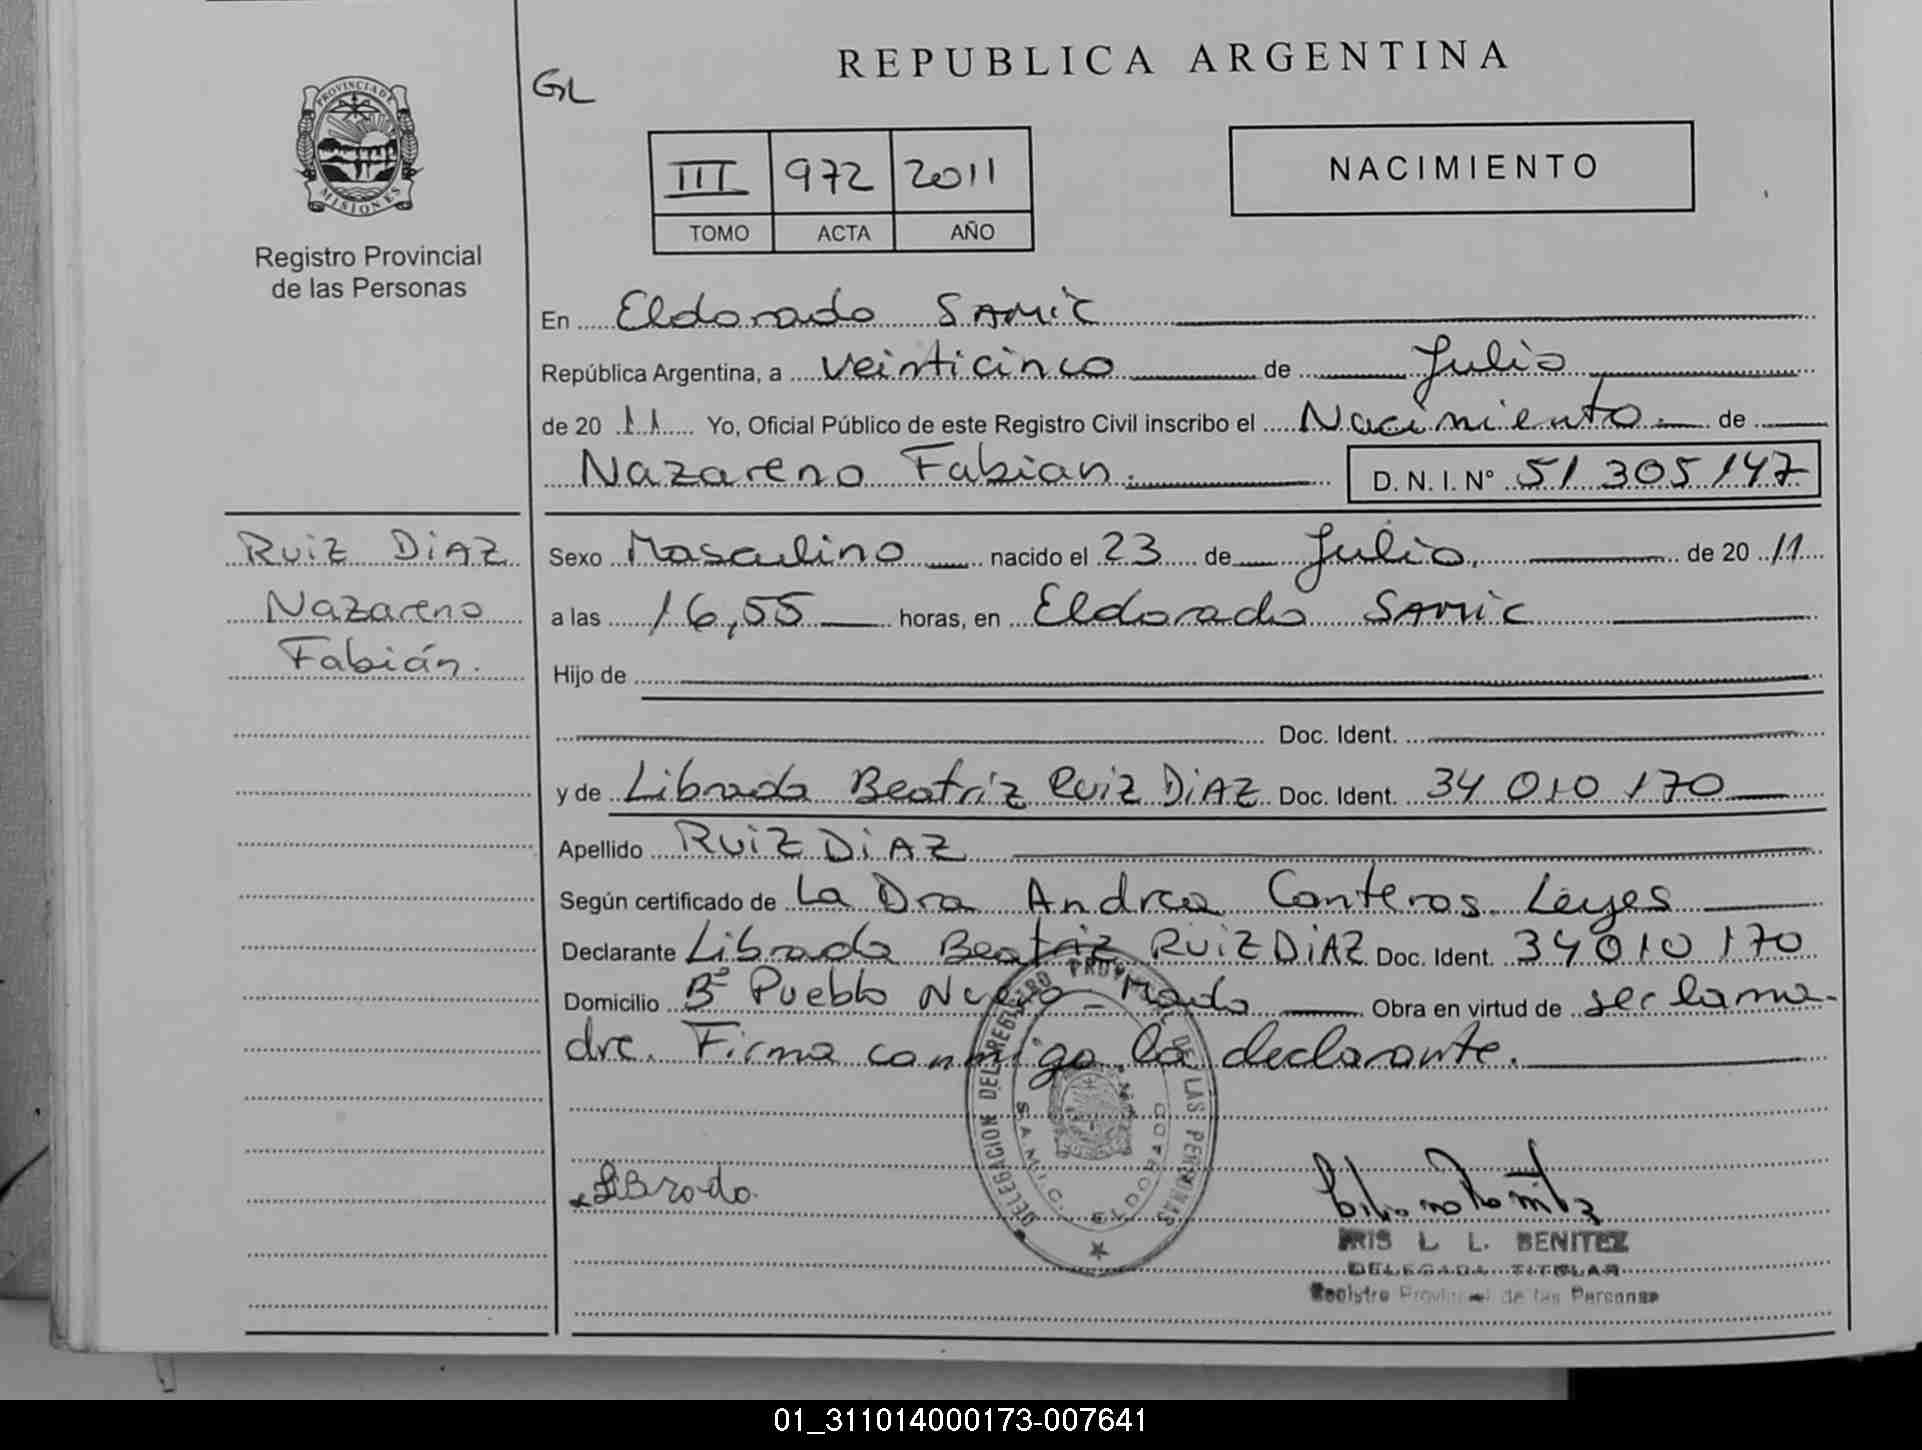 REPUBLICA ARGENTINA
GL
PROVINCIA DE
MISIONES
Registro Provincial
de las Personas
III 972 2011
TOMO ACTA AÑO
NACIMIENTO
En Eldorado SAMIC
República Argentina, a veinticinco de Julio
de 20 11 Yo, Oficial Público de este Registro Civil inscribo el Nacimiento de
Nazareno Fabian. D. N. I. Nº 51 305 147
Ruiz Diaz
Nazareno
Fabián.
Sexo Masculino nacido el 23 de Julio, de 20 11
a las 16,55 horas, en Eldorado SAMIC
Hijo de
Doc. Ident.
y de Librada Beatriz Ruiz Diaz Doc. Ident. 34 010 170
Apellido Ruiz Diaz
Según certificado de La Dra Andrea Canteros Leyes
Declarante Librada Beatriz Ruiz Diaz Doc. Ident. 34 010 170
Domicilio Bº Pueblo Nuevo - Mado Obra en virtud de ser la ma-
dre. Firma conmigo la declarante.
DELEGACION DEL REGISTRO PROVINCIAL DE LAS PERSONAS
S.A.M.I.C. ELDORADO
Librada
IRIS L. L. BENITEZ
DELEGADA TITULAR
Registro Provincial de las Personas
01_311014000173-007641